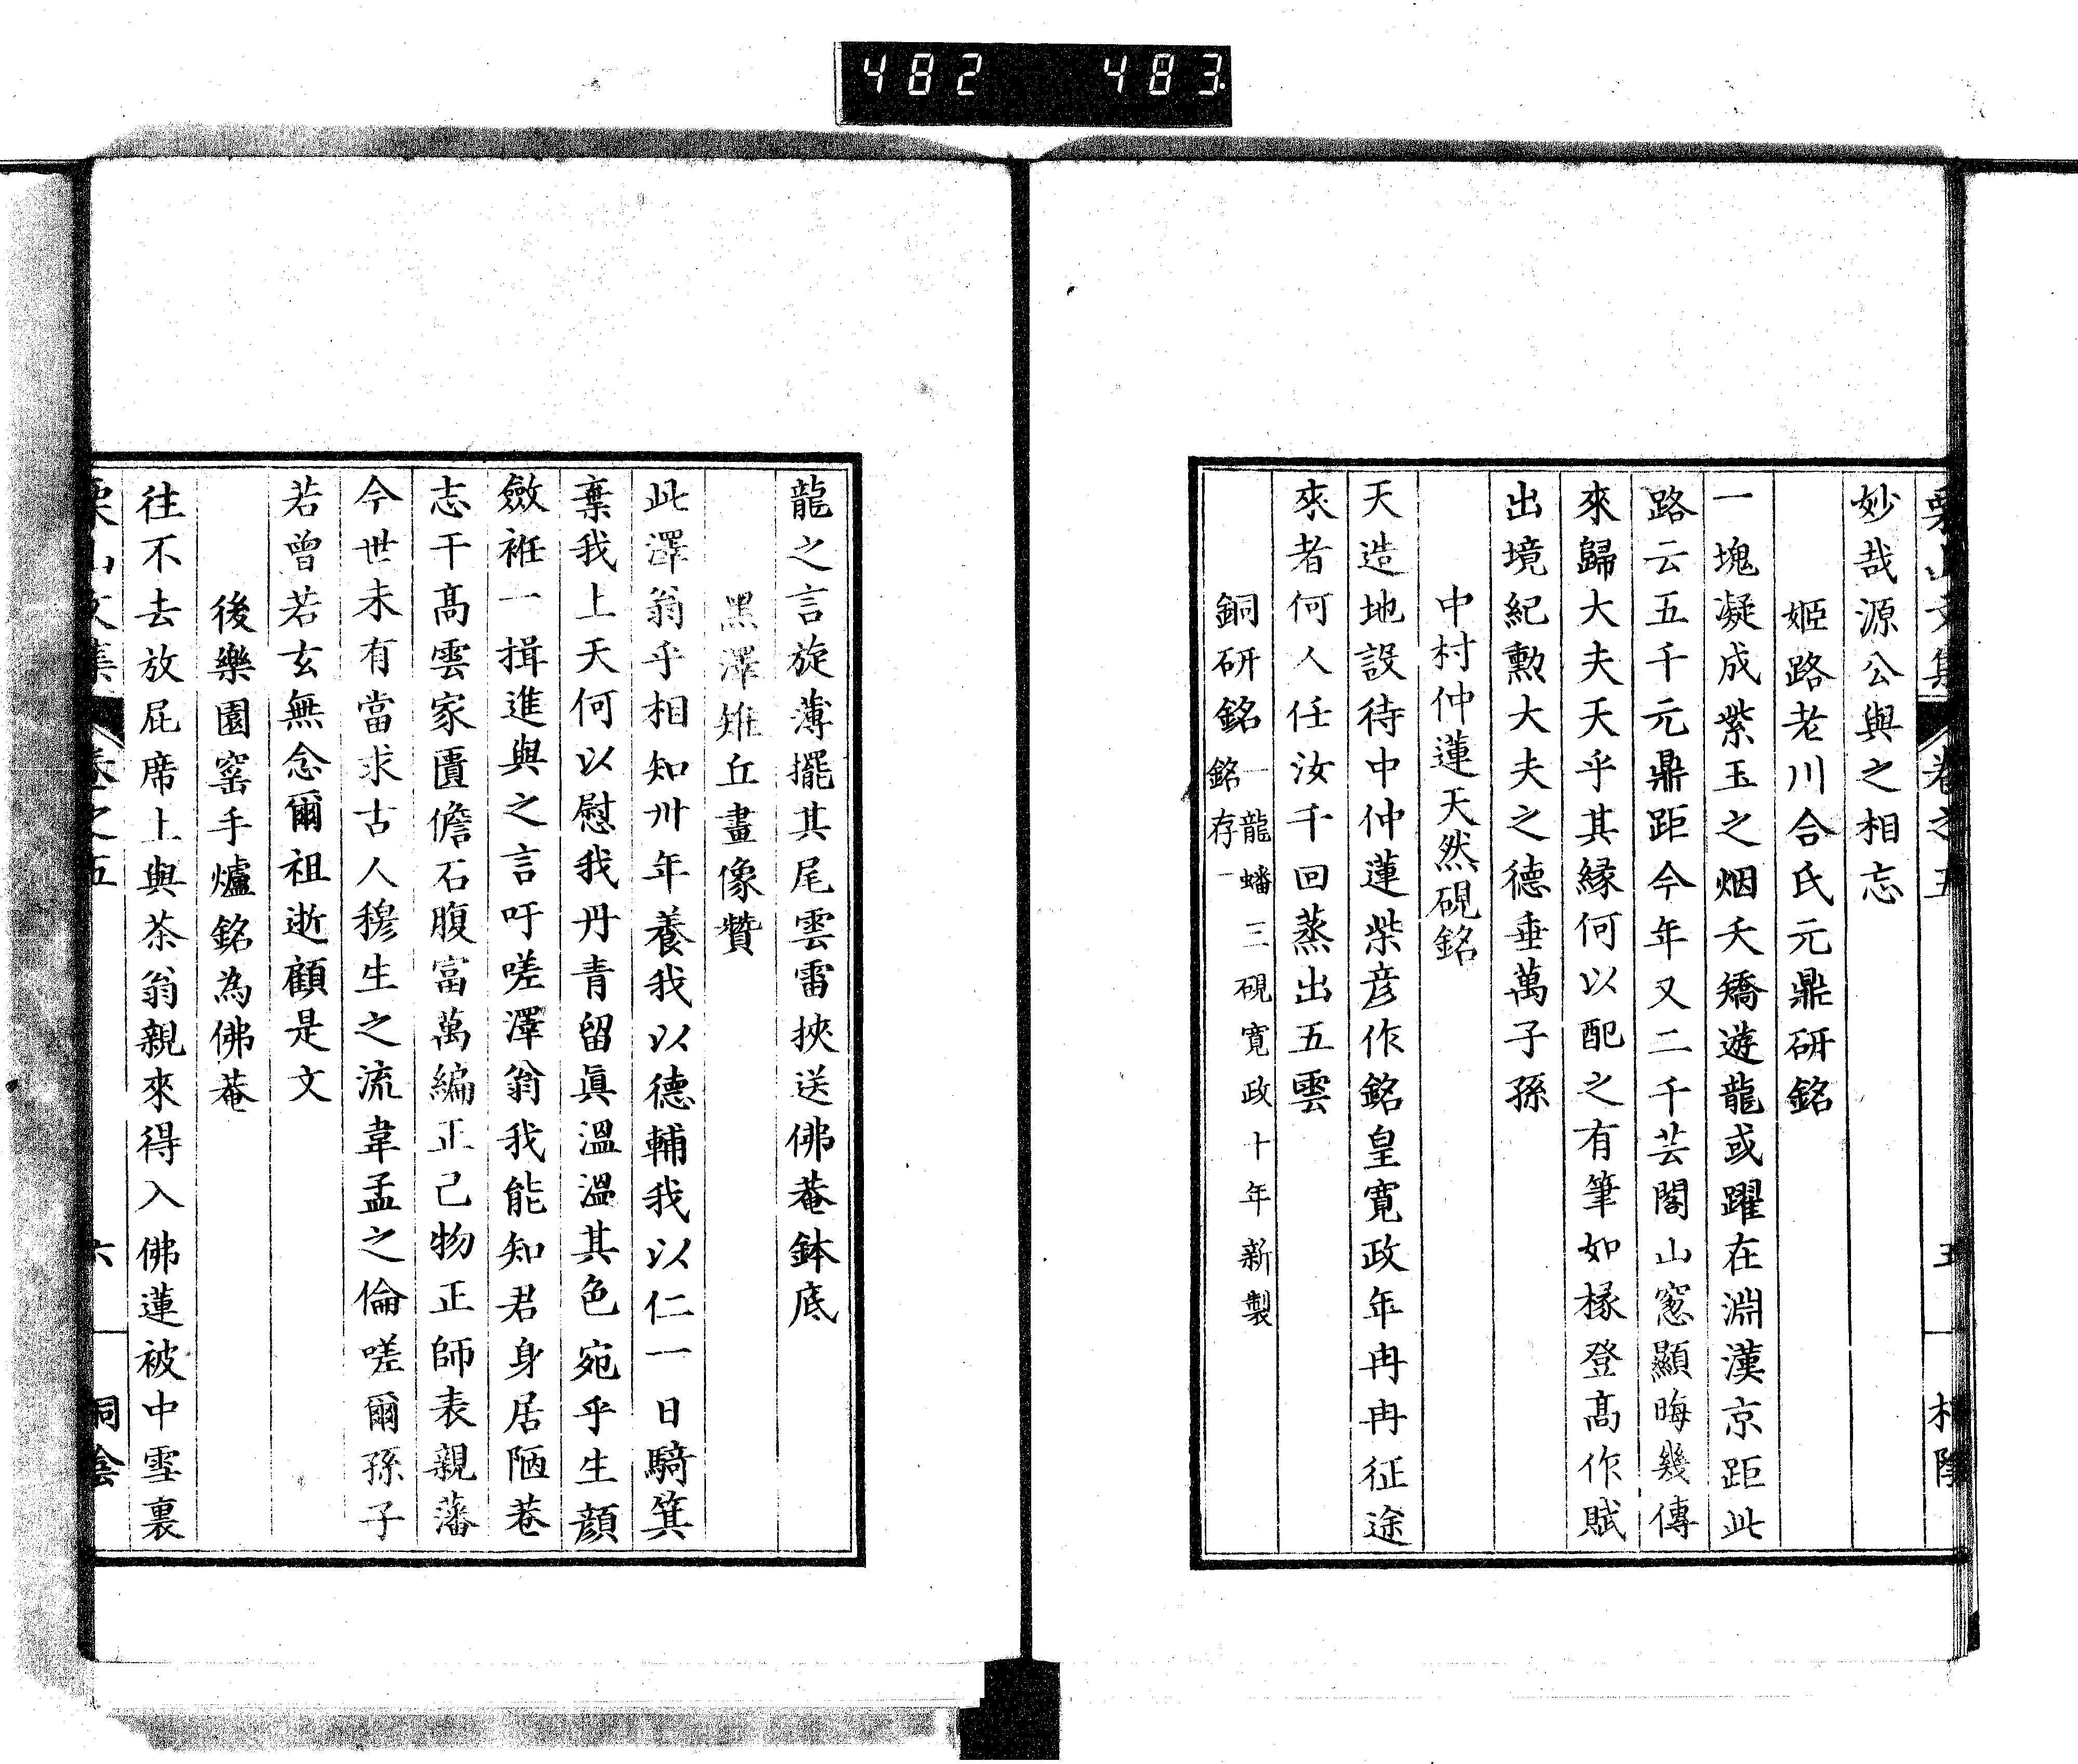 482 483
栗山文集 卷之五 五
妙哉源公與之相忘
姬路老川合氏元鼎研銘
一塊凝成紫玉之烟夭矯遊龍或躍在淵漢京距此
路云五千元鼎距今年又二千芸閣山窓顯晦幾傳
來歸大夫天乎其緣何以配之有筆如椽登高作賦
出境紀勲大夫之德垂萬子孫
中村仲蓮天然硯銘
天造地設待中仲蓮柴彦作銘皇寛政年冉冉征途
來者何人任汝千回蒸出五雲
銅研銘 一龍蟠三硯寛政十年新製
銘存一
龍之言旋薄擺其尾雲雷挾送佛菴鉢底
黑澤雉丘畫像贊
此澤翁乎相知卅年養我以德輔我以仁一日騎箕
棄我上天何以慰我丹青留眞溫溫其色宛乎生顔
斂袵一揖進與之言吁嗟澤翁我能知君身居陋巷
志干高雲家匱儋石腹富萬編正己物正師表親藩
今世未有當求古人穆生之流韋孟之倫嗟爾孫子
若曾若玄無念爾祖逝顧是文
後樂園窯手爐銘為佛菴
往不去放屁席上與茶翁親來得入佛蓮被中雪裏
栗山文集 卷之五 六 桐陰